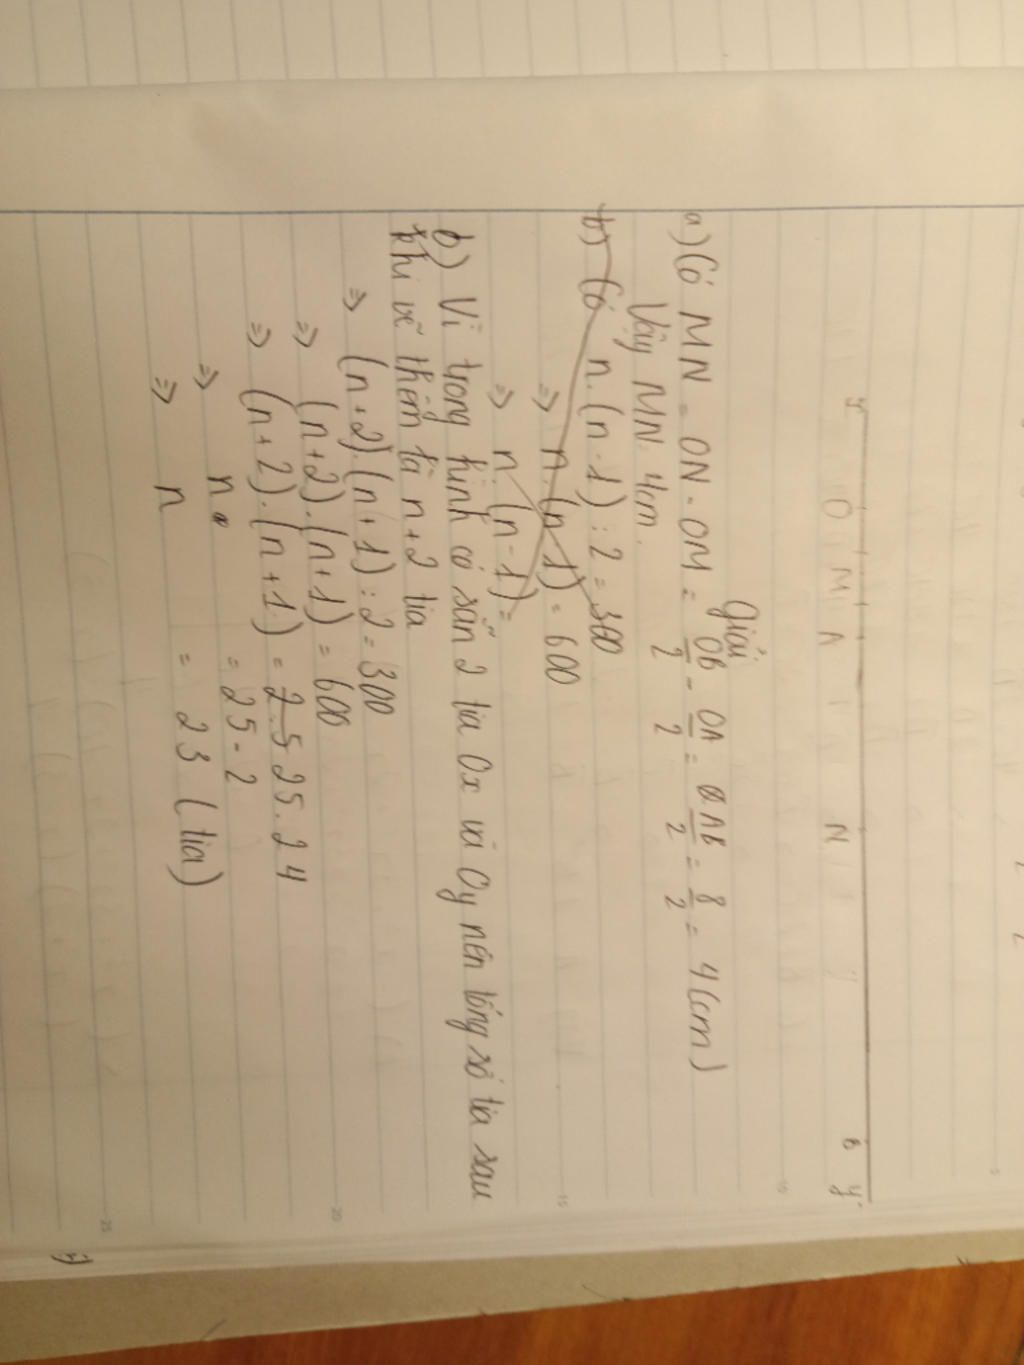 x O M A N B y
Giải
a) Có MN = ON - OM = OB/2 - OA/2 = AB/2 = 8/2 = 4(cm)
Vậy MN = 4cm.
b) Có n.(n-1) : 2 = 300
=> n.(n-1) = 600
=> n.(n-1) =
b) Vì trong hình có sẵn 2 tia Ox và Oy nên tổng số tia sau
khi vẽ thêm là n+2 tia
=> (n+2).(n+1) : 2 = 300
=> (n+2).(n+1) = 600
=> (n+2).(n+1) = 2.5 25.24
=> n = 25-2
=> n = 23 (tia)
15
20
25